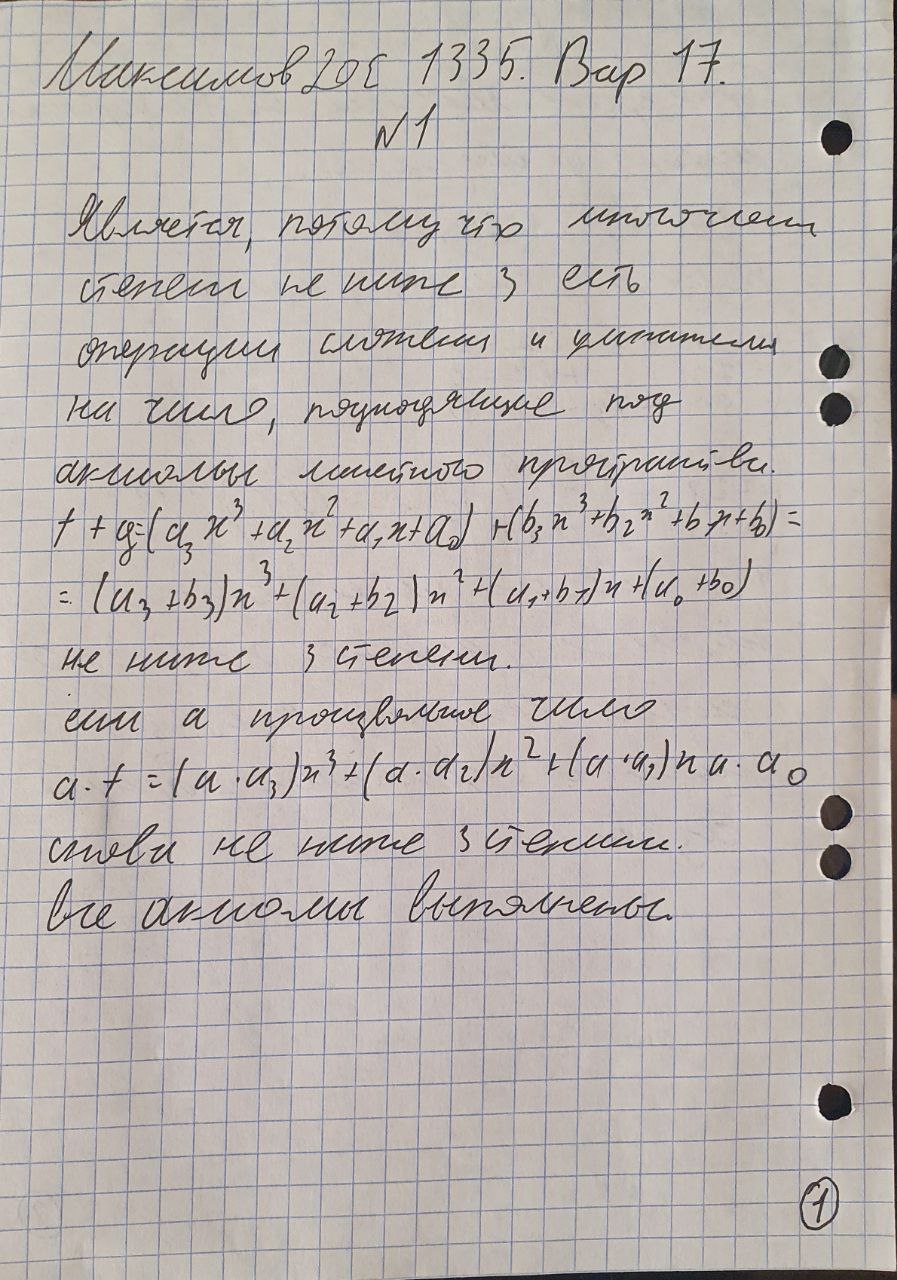 Максимов 1335. Вар 17.
№1
Является, потому что многочлен
степени не ниже 3 есть
операции сложения и умножения
на число, подходящие под
аксиомы линейного пространства.
f + g = (a₃x³ + a₂x² + a₁x + a₀) + (b₃x³ + b₂x² + b₁x + b₀) =
= (a₃ + b₃)x³ + (a₂ + b₂)x² + (a₁ + b₁)x + (a₀ + b₀)
не ниже 3 степени.
если a произвольное число
a · f = (a · a₃)x³ + (a · a₂)x² + (a · a₁)x a · a₀
снова не ниже 3 степени.
все аксиомы выполнены.
1